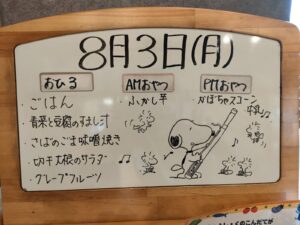 8月3日(月)
おひる
・ごはん
・青菜と豆腐のすまし汁
・さばのごま味噌焼き
・切干大根のサラダ
・グレープフルーツ
AMおやつ
・ふかし芋
PMおやつ
・かぼちゃスコーン
・牛乳